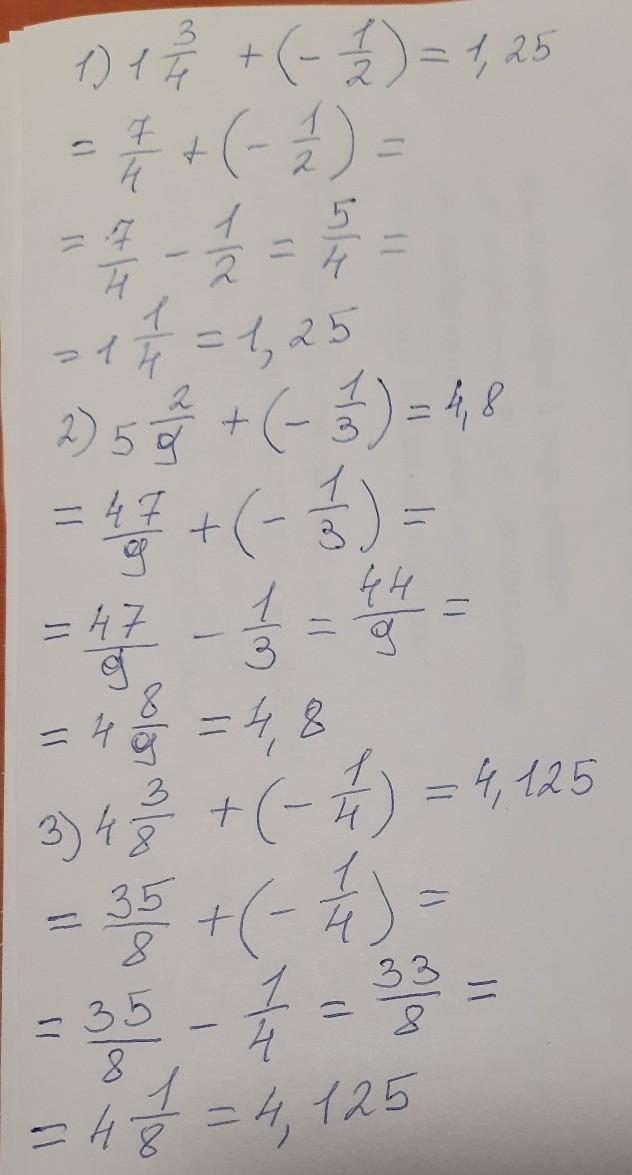 1) 1 3/4 + (- 1/2) = 1,25
= 7/4 + (- 1/2) =
= 7/4 - 1/2 = 5/4 =
= 1 1/4 = 1,25
2) 5 2/9 + (- 1/3) = 4,8
= 47/9 + (- 1/3) =
= 47/9 - 1/3 = 44/9 =
= 4 8/9 = 4,8
3) 4 3/8 + (- 1/4) = 4,125
= 35/8 + (- 1/4) =
= 35/8 - 1/4 = 33/8 =
= 4 1/8 = 4,125